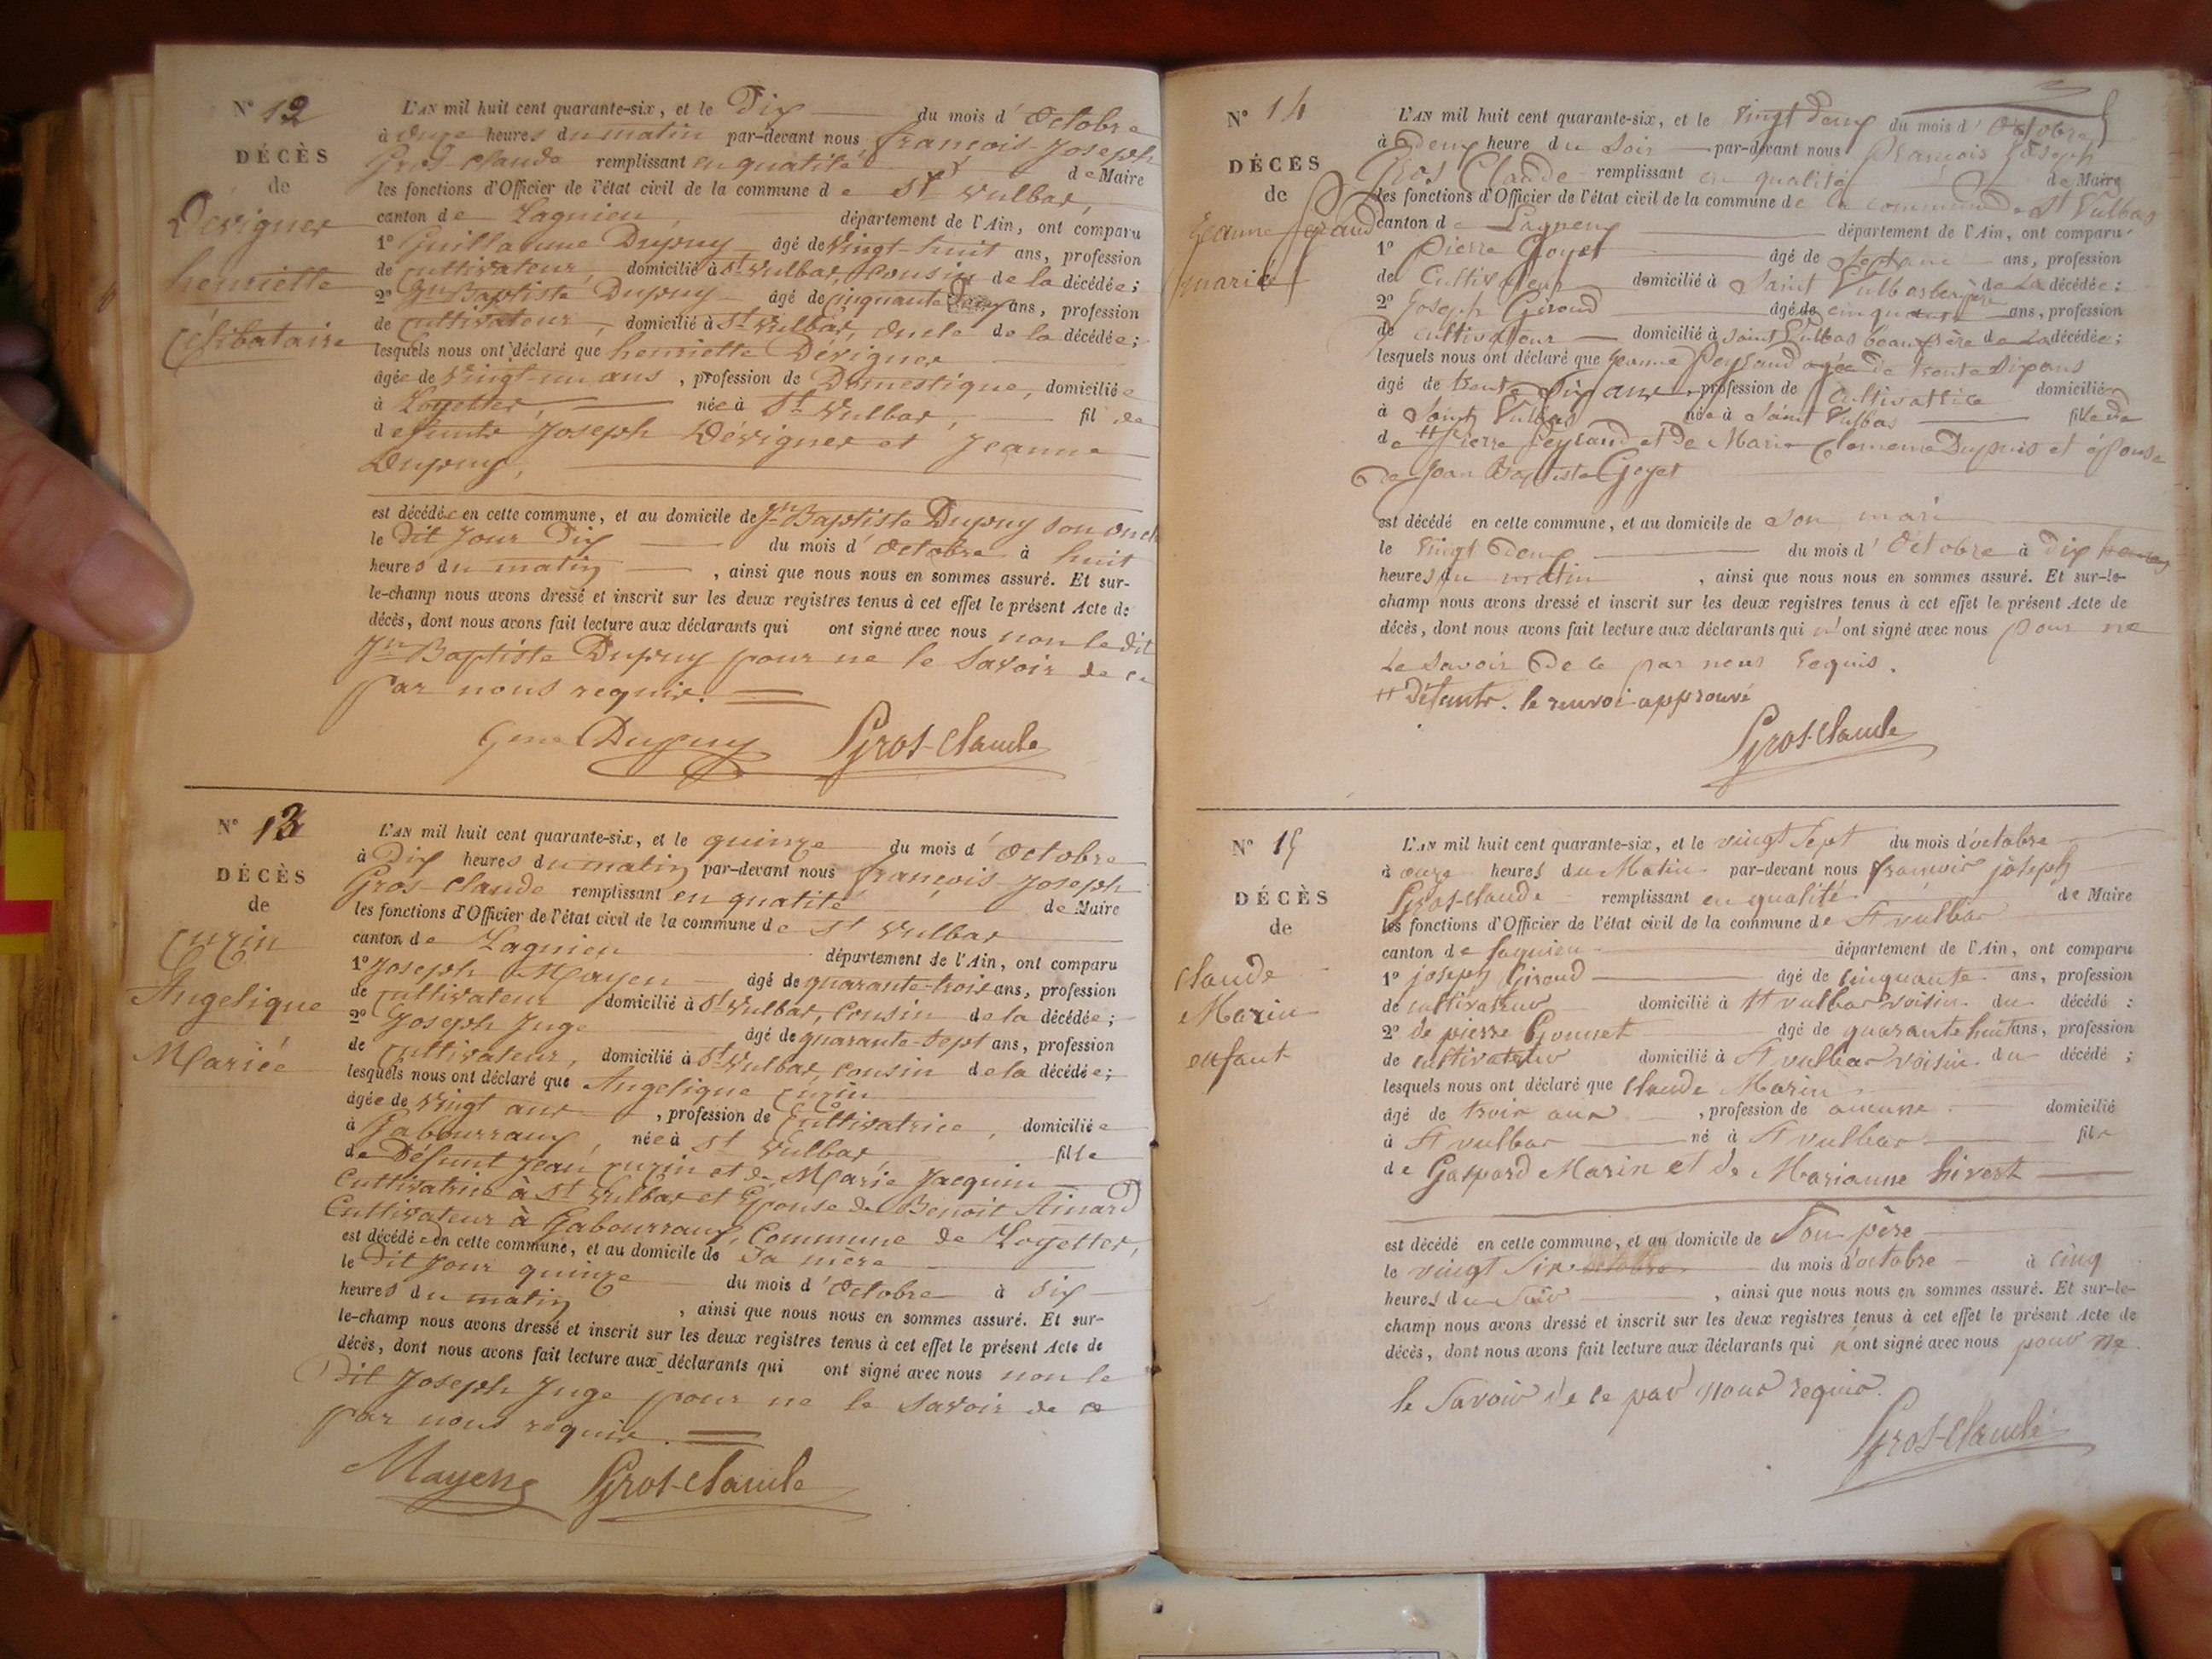 N° 12
DÉCÈS
de
Dévigner
henriette
célibataire
L'AN mil huit cent quarante-six, et le Dix du mois d'Octobre
à onze heures du matin par-devant nous françois-Joseph
Gros-claude remplissant en qualité de Maire
les fonctions d'Officier de l'état civil de la commune de St Vulbas,
canton de Lagnieu, département de l'Ain, ont comparu
1° Guillaume Dupuy âgé de vingt-huit ans, profession
de cultivateur, domicilié à St Vulbas, cousin de la décédée;
2° Jn Baptiste Dupuy âgé de cinquante ans, profession
de cultivateur, domicilié à St Vulbas, oncle de la décédée;
lesquels nous ont déclaré que henriette Dévigner
âgée de vingt-un ans, profession de Domestique, domiciliée
à Loyettes, née à St Vulbas, fil de
defunts Joseph Dévigner et Jeanne
Dupuy,
est décédée en cette commune, et au domicile de Jn Baptiste Dupuy son oncle
le dit jour Dix du mois d'Octobre à huit
heures du matin, ainsi que nous nous en sommes assuré. Et sur-
le-champ nous avons dressé et inscrit sur les deux registres tenus à cet effet le présent Acte de
décès, dont nous avons fait lecture aux déclarants qui ont signé avec nous non le dit
Jn Baptiste Dupuy pour ne le savoir de ce
par nous requis.
Gme Dupuy Gros-claude
N° 13
DÉCÈS
de
Cuzin
Angelique
Mariée
L'AN mil huit cent quarante-six, et le quinze du mois d'Octobre
à Dix heures du matin par-devant nous françois-Joseph
Gros-claude remplissant en qualité de Maire
les fonctions d'Officier de l'état civil de la commune de St Vulbas
canton de Lagnieu département de l'Ain, ont comparu
1° Joseph Mayen âgé de quarante-trois ans, profession
de cultivateur domicilié à St Vulbas, cousin de la décédée;
2° Joseph Juge âgé de quarante-sept ans, profession
de cultivateur, domicilié à St Vulbas, cousin de la décédée;
lesquels nous ont déclaré que Angelique Cuzin
âgée de vingt ans, profession de Cultivatrice, domiciliée
à Gabourraux, née à St Vulbas, fille
de Défunt Jean Cuzin et de Marie Jacquin
Cultivatrice à St Vulbas et Epouse de Benoit Ainard
Cultivateur à Gabourraux, Commune de Loyettes,
est décédée en cette commune, et au domicile de Sa mère
le dit jour quinze du mois d'Octobre à six
heures du matin, ainsi que nous nous en sommes assuré. Et sur-
le-champ nous avons dressé et inscrit sur les deux registres tenus à cet effet le présent Acte de
décès, dont nous avons fait lecture aux déclarants qui ont signé avec nous non le
Dit Joseph Juge pour ne le savoir de ce
par nous requis.
Mayen Gros-claude
N° 14
DÉCÈS
de
Jeanne
mariée
L'AN mil huit cent quarante-six, et le vingt deux du mois d'Octobre
à deux heure du soir par-devant nous françois Joseph
Gros Claude remplissant en qualité de Maire
les fonctions d'Officier de l'état civil de la commune de la commune de St Vulbas
canton de Lagneu département de l'Ain, ont comparu
1° Pierre Goyet âgé de ans, profession
de Cultivateur domicilié à Saint Vulbas de La décédée;
2° Joseph Giroud âgé de cinquante ans, profession
de cultivateur domicilié à saint Vulbas beau frère de La décédée;
lesquels nous ont déclaré que Jeanne Peyraud agée de trente six ans
âgé de trente Six ans profession de cultivatrice domiciliée
à Saint Vulbas née à Saint Vulbas fille de
de # Pierre Peyraud et de Marie Dupuis et épouse
de Jean Baptiste Goyet
est décédé en cette commune, et au domicile de son mari
le vingt deux du mois d'Octobre à dix heures
heures du matin, ainsi que nous nous en sommes assuré. Et sur-le-
champ nous avons dressé et inscrit sur les deux registres tenus à cet effet le présent Acte de
décès, dont nous avons fait lecture aux déclarants qui n'ont signé avec nous pour ne
Le savoir de ce par nous requis.
# Défunts. le renvoi approuvé
Gros-claude
N° 15
DÉCÈS
de
Claude
Marin
enfant
L'AN mil huit cent quarante-six, et le vingt sept du mois d'octobre
à onze heures du Matin par-devant nous françois joseph
Gros-claude remplissant en qualité de Maire
les fonctions d'Officier de l'état civil de la commune de St vulbas
canton de Lagnieu département de l'Ain, ont comparu
1° joseph Giroud âgé de cinquante ans, profession
de cultivateur domicilié à St vulbas voisin du décédé;
2° de pierre Gonnet âgé de quarante huit ans, profession
de cultivateur domicilié à St vulbas voisin du décédé;
lesquels nous ont déclaré que Claude Marin
âgé de trois ans, profession de aucune domicilié
à St vulbas né à St vulbas fils
de Gaspard Marin et de Marianne hivert
est décédé en cette commune, et au domicile de Son père
le vingt Six octobre du mois d'octobre à cinq
heures du Soir, ainsi que nous nous en sommes assuré. Et sur-le-
champ nous avons dressé et inscrit sur les deux registres tenus à cet effet le présent Acte de
décès, dont nous avons fait lecture aux déclarants qui n'ont signé avec nous pour ne
le Savoir de ce par nous requis.
Gros-claude